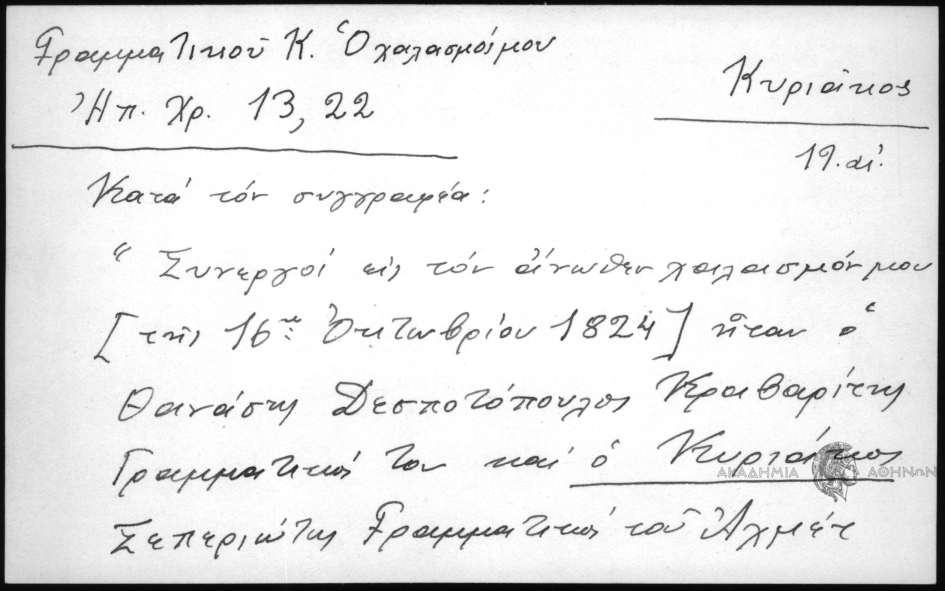 Γραμματικοῦ Κ. Ὁ χαλασμός μου
Ἠπ. Χρ. 13, 22
Κυριάκος
19. αἰ.
Κατά τόν συγγραφέα:
" Συνεργοί εἰς τόν ἄνωθεν χαλασμόν μου
[τῆς 16ης Ὀκτωβρίου 1824] ἦταν ὁ
Θανάσης Δεσποτόπουλος Κραβαρίτης
Γραμματικός του καί ὁ Κυριάκος
ΑΚΑΔΗΜΙΑ ΑΘΗΝΩΝ
Ξεπεριώτης Γραμματικός τοῦ Ἀχμέτ